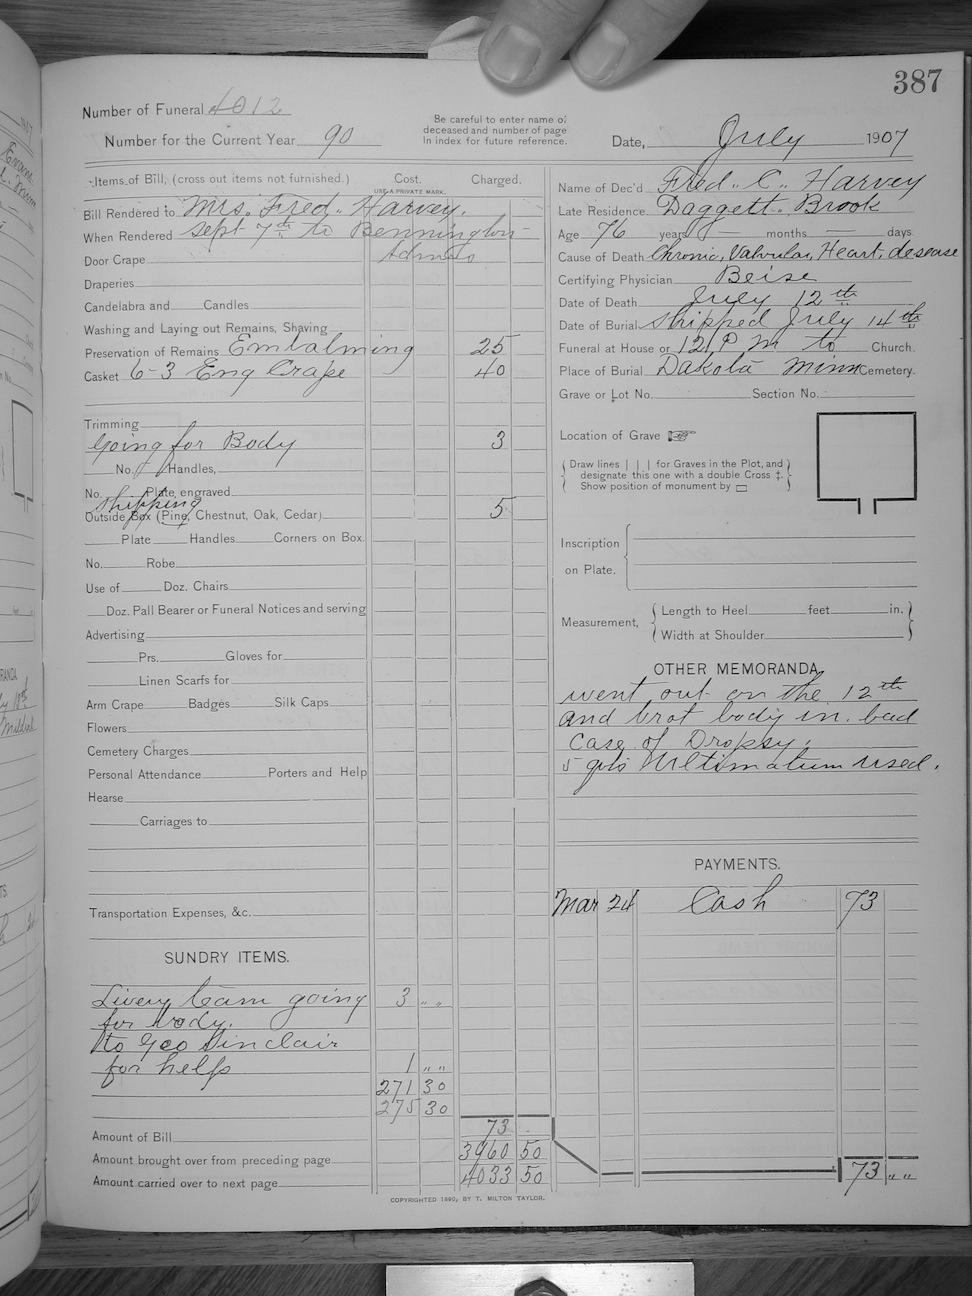 387
Number of Funeral 4012
Number for the Current Year 90
Be careful to enter name of
deceased and number of page
in index for future reference.
Date, July 1907
Items of Bill, (cross out items not furnished.) Cost. Charged.
USE A PRIVATE MARK.
Bill Rendered to Mrs. Fred. Harvey.
When Rendered Sept 7th to Bennington
Door Crape
Draperies
Candelabra and Candles
Washing and Laying out Remains, Shaving
Preservation of Remains Embalming 25
Casket 6-3 Eng Crape 40
Trimming
Going for Body 3
No. Handles,
No. Plate, engraved
shipping
Outside Box (Pine, Chestnut, Oak, Cedar) 5
Plate Handles Corners on Box.
No. Robe
Use of Doz. Chairs
Doz. Pall Bearer or Funeral Notices and serving
Advertising
Prs. Gloves for
Linen Scarfs for
Arm Crape Badges Silk Caps
Flowers
Cemetery Charges
Personal Attendance Porters and Help
Hearse
Carriages to
Transportation Expenses, &c.
SUNDRY ITEMS.
Livery team going 3 " "
for body.
to Geo Sinclair
for help 1 " "
271 30
275 30
Amount of Bill 73
Amount brought over from preceding page 3960 50
Amount carried over to next page 4033 50
COPYRIGHTED 1890, BY T. MILTON TAYLOR.
Name of Dec'd Fred. C. Harvey
Late Residence Daggett. Brook
Age 76 years — months — days
Cause of Death Chronic, Valvular, Heart. desease
Certifying Physician Beise
Date of Death July 12th
Date of Burial shipped July 14th
Funeral at House or 12, P M to Church.
Place of Burial Dakota Minn Cemetery.
Grave or Lot No. Section No.
Location of Grave
Draw lines | | | for Graves in the Plot, and
designate this one with a double Cross ‡.
Show position of monument by
Inscription
on Plate.
Measurement, Length to Heel feet in.
Width at Shoulder
OTHER MEMORANDA
went out on the 12th
and brot body in. bad
Case of Dropsy.
5 gls Ultimatum used.
PAYMENTS.
Mar 24 Cash 73
73 " "